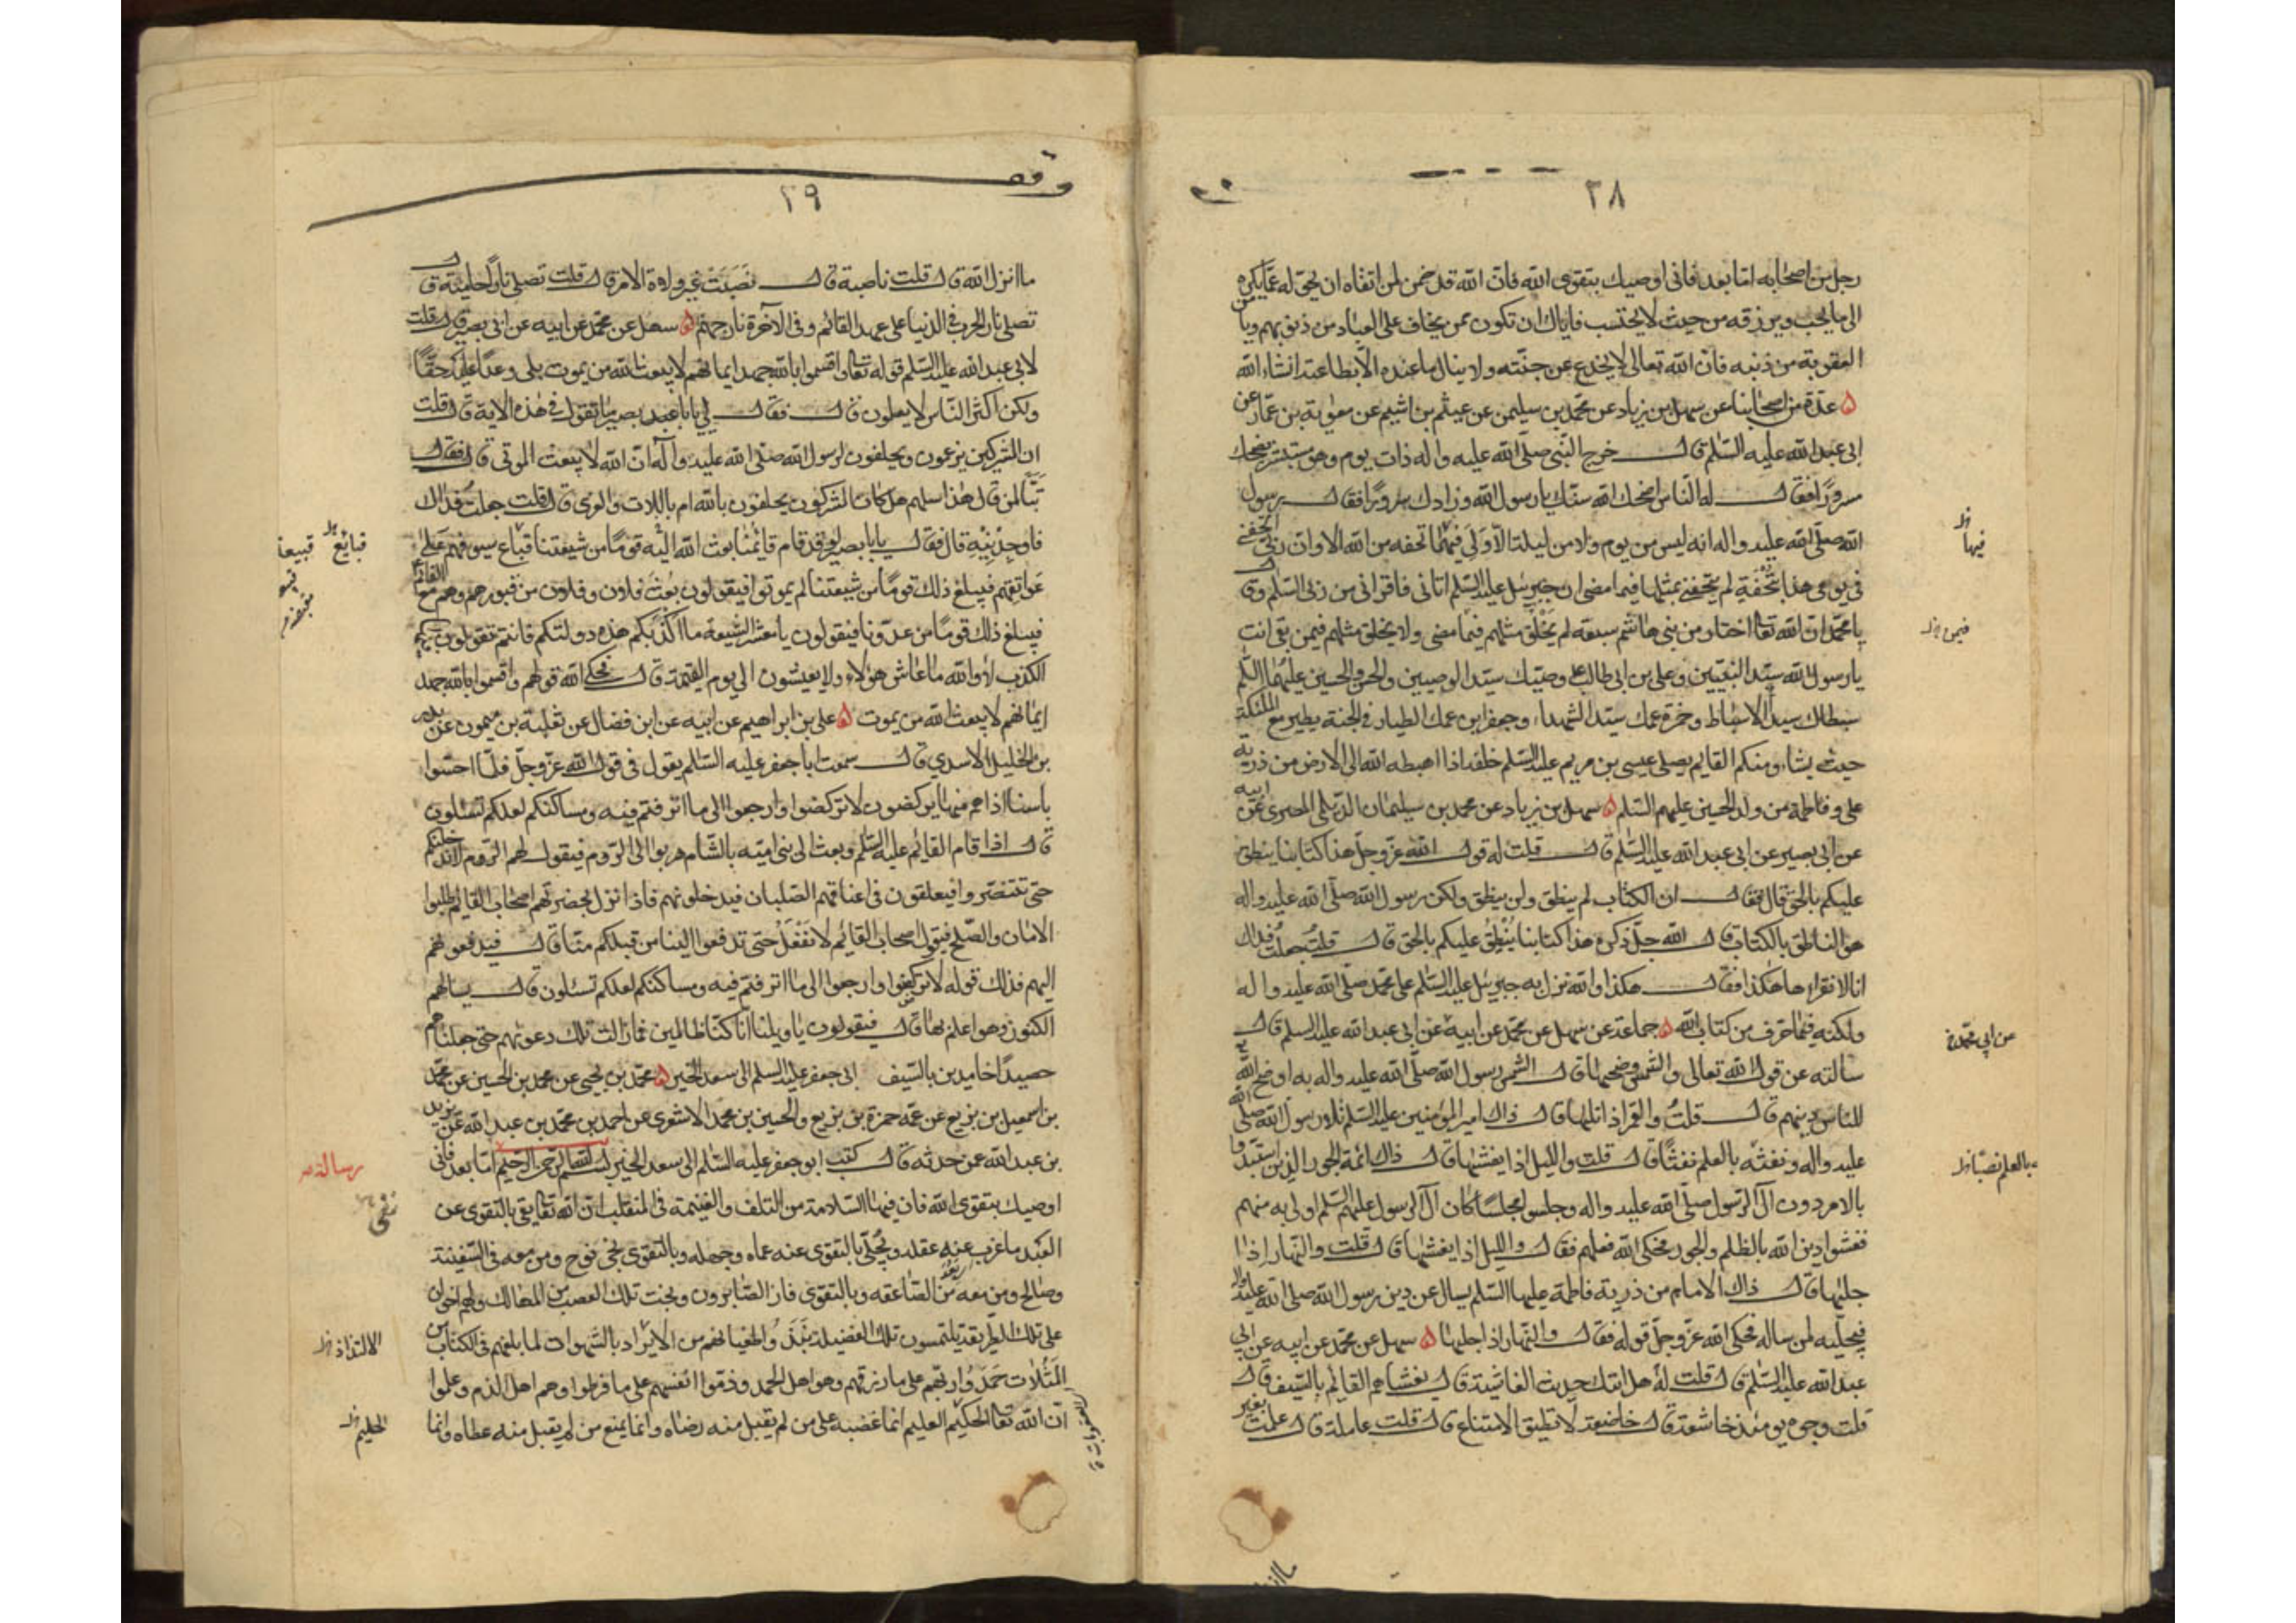 ٢٨
رجل من اصحابه اما بعد فانى اوصيك بتقوى الله فان الله قد ضمن لمن اتقاه ان يحوّله عمّا يكره
الى ما يحب ويرزقه من حيث لا يحتسب فاياك ان تكون ممن يخاف على العباد من ذنوبهم ويأمن
العقوبة من ذنبه فان الله تعالى لا يخدع عن جنته ولا ينال ما عنده الا بطاعته انشاء الله
ه عدة من اصحابنا عن سهل بن زياد عن محمد بن سليمن عن عيثم بن اشيم عن معوية بن عمار عن
ابى عبد الله عليه السلام قال خرج النبى صلى الله عليه واله ذات يوم وهو مستبشر يضحك
سرورًا فقال له الناس اضحك الله سنك يا رسول الله وزادك سرورًا فقال رسول
الله صلى الله عليه واله انه ليس من يوم ولا من ليلة الا ولى فيهما تحفة من الله الا وان ربى اتحفنى
فى يومى هذا بتحفة لم يتحفنى بمثلها فيما مضى ان جبرئيل عليه السلم اتانى فاقرانى من ربى السلم وقال
يا محمد ان الله تعالى اختار من بنى هاشم سبعة لم يخلق مثلهم فيما مضى ولا يخلق مثلهم فيمن بقى انت
يا رسول الله سيد النبيين وعلى بن ابى طالب وصيك سيد الوصيين والحسن والحسين عليهما السلم
سبطاك سيدا الاسباط وحمزة عمك سيد الشهداء وجعفر ابن عمك الطيار فى الجنة يطير مع الملئكة
حيث يشاء ومنكم القائم يصلى عيسى بن مريم عليه السلم خلفه اذا اهبطه الله الى الارض من ذرية
على وفاطمة من ولد الحسين عليهم السلم ه سهل بن زياد عن محمد بن سليمان الديلمى المصرى عن ابيه
عن ابى بصير عن ابى عبد الله عليه السلم قال قلت له قول الله عز وجل هذا كتابنا ينطق
عليكم بالحق قال فقال ان الكتاب لم ينطق ولن ينطق ولكن رسول الله صلى الله عليه واله
هو الناطق بالكتاب قال الله جل ذكره هذا كتابنا يُنْطَقُ عليكم بالحق قال قلت جعلت فداك
انا لا نقراها هكذا فقال هكذا والله نزل به جبرئيل عليه السلم على محمد صلى الله عليه واله
ولكنه فيما حرف من كتاب الله ه جماعة عن سهل عن محمد عن ابيه عن ابى عبد الله عليه السلم قال
سالته عن قول الله تعالى والشمس وضحيها قال الشمس رسول الله صلى الله عليه واله به اوضح الله
للناس دينهم قال قلت والقمر اذا تليها قال ذاك امير المؤمنين عليه السلم تلا رسول الله صلى الله
عليه واله ونفثه بالعلم نفثًا قال قلت والليل اذا يغشيها قال ذاك ائمة الجور الذين استبدوا
بالامر دون آل الرسول صلى الله عليه واله وجلسوا مجلسا كان آل الرسول عليهم السلم اولى به منهم
فغشوا دين الله بالظلم والجور فحكى الله فعلهم فقال والليل اذا يغشيها قال قلت والنهار اذا
جليها قال ذاك الامام من ذرية فاطمة عليها السلم يسال عن دين رسول الله صلى الله عليه واله
فيجليه لمن ساله فحكى الله عز وجل قوله فقال والنهار اذا جليها ه سهل عن محمد عن ابيه عن ابى
عبد الله عليه السلم قال قلت له هل اتيك حديث الغاشية قال يغشاهم القائم بالسيف قال
قلت وجوه يومئذ خاشعة قال خاضعة لا تطيق الامتناع قال قلت عاملة قال عملت بغير
فيها
فيمن
عن ابى محمد
بالعلم نصبا
٢٩
ما انزل الله قال قلت ناصبة قال نصبت غير ولاة الامر قال قلت تصلى نارا حامية قال
تصلى نار الحرب فى الدنيا على عهد القائم وفى الآخرة نار جهنم ه سهل عن محمد عن ابيه عن ابى بصير قال قلت
لابى عبد الله عليه السلم قوله تعالى واقسموا بالله جهد ايمانهم لا يبعث الله من يموت بلى وعدا عليه حقًا
ولكن اكثر الناس لا يعلمون قال فقال لى يا با بصير ما تقول فى هذه الاية قال قلت
ان المشركين يزعمون ويحلفون لرسول الله صلى الله عليه وآله ان الله لا يبعث الموتى قال فقال
تبًّا لمن قال هذا سلهم هل كان المشركون يحلفون بالله ام باللات والعزى قال قلت جعلت فداك
فاوجدنيه قال فقال يا با بصير لو قد قام قائمنا بعث الله اليه قومًا من شيعتنا قباع سيوفهم على
عواتقهم فيبلغ ذلك قومًا من شيعتنا لم يموتوا فيقولون بعث فلان وفلان من قبورهم وهم مع القائم
فيبلغ ذلك قومًا من عدونا فيقولون يا معشر الشيعة ما اكذبكم هذه دولتكم فانتم تقولون فيها
الكذب لا والله ما عاش هؤلاء ولا يعيشون الى يوم القيمة قال فحكى الله قولهم واقسموا بالله جهد
ايمانهم لا يبعث الله من يموت ه على بن ابراهيم عن ابيه عن ابن فضال عن ثعلبة بن ميمون عن بدر
بن الخليل الاسدي قال سمعت ابا جعفر عليه السلم يقول فى قول الله عز وجل فلما احسوا
باسنا اذا هم منها يركضون لا تركضوا وارجعوا الى ما اترفتم فيه ومساكنكم لعلكم تسئلون
قال اذا قام القائم عليه السلم وبعث الى بنى امية بالشام هربوا الى الروم فيقول لهم الروم لا ندخلنكم
حتى تتنصروا فيعلقون فى اعناقهم الصلبان فيدخلونهم فاذا نزل بحضرتهم اصحاب القائم طلبوا
الامان والصلح فيقول اصحاب القائم لا نفعل حتى تدفعوا الينا من قبلكم منا قال فيدفعونهم
اليهم فذلك قوله لا تركضوا وارجعوا الى ما اترفتم فيه ومساكنكم لعلكم تسئلون قال يسالهم
الكنوز وهو اعلم بها قال فيقولون يا ويلنا انا كنا ظالمين فما زالت تلك دعويهم حتى جعلناهم
حصيدًا خامدين بالسيف ابى جعفر عليه السلم الى سعد الخير ه محمد بن يحيى عن محمد بن الحسين عن محمد
بن اسمعيل بن بزيع عن عمه حمزة بن بزيع والحسين بن محمد الاشعرى عن احمد بن محمد بن عبد الله عن يزيد
بن عبد الله عمن حدثه قال كتب ابو جعفر عليه السلام الى سعد الخير بسم الله الرحمن الرحيم اما بعد فانى
اوصيك بتقوى الله فان فيها السلامة من التلف والغنيمة فى المنقلب ان الله تعالى يقى بالتقوى عن
العبد ما عزب عنه عقله ويُجَلّى بالتقوى عنه عماه وجهله وبالتقوى نجى نوح ومن معه فى السفينة
وصالح ومن معه من الصاعقه وبالتقوى فاز الصابرون ونجت تلك العصب من المهالك ولهم اخوان
على تلك الطريقة يلتمسون تلك الفضيلة نبذوا طغيانهم من الايراد بالشهوات لما بلغهم فى الكتاب من
المثلات حمدوا ربهم على ما رزقهم وهو اهل الحمد وذموا انفسهم على ما فرطوا وهم اهل الذم وعلموا
ان الله تعالى الحكيم العليم انما غضبه على من لم يقبل منه رضاه وانما يمنع من لم يقبل منه عطاه وانما
قبائع
قبيعة
رسالة
نفى
الالتذاذ
الحليم